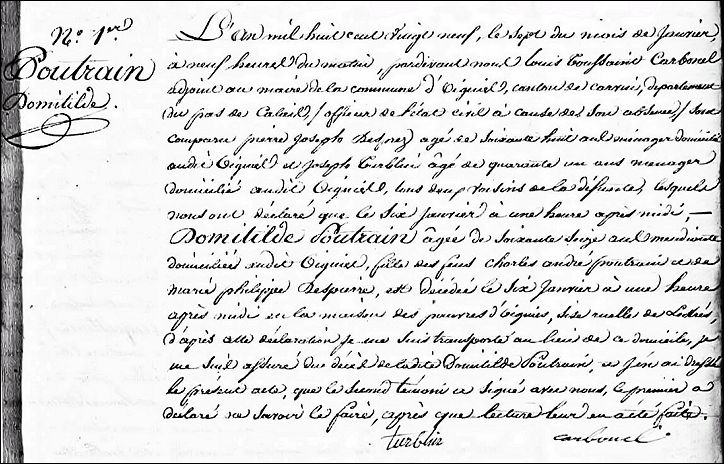 N.º 1.er
Poutrain
Domitilde.
L'an mil huit cent vingt neuf, le sept du mois de Janvier,
à neuf heures du matin, pardevant nous Louis Toussaint Carbonel
adjoint au maire de la commune d'Oignies, canton de Carvin, département
du pas de Calais, / officier de l'état civil à cause de son absence, / sont
comparu pierre Joseph Desprez agé de soixante huit ans ménager domicilié
audit Oignies et Joseph Turblin âgé de quarante un ans menager
domicilié audit Oignies, tous deux voisins de la défunte, lesquels
nous ont déclaré que le six Janvier à une heure après midi, —
Domitilde Poutrain âgée de soixante seize ans mendiante
domiciliée audit Oignies, fille des feus Charles andré poutrain et de
marie philippe Despierre, est décédée le six Janvier à une heure
après midi en la maison des pauvres d'oignies, sise ruelle de
d'après cette déclaration je me suis transporté au lieu de ce domicile, je
me suis assuré du décès de ladite Domitilde Poutrain et j'en ai dressé
le présent acte, que le second témoin a signé avec nous, le premier a
déclaré ne savoir le faire, après que lecture leur en a été faite.
turblin carbonel